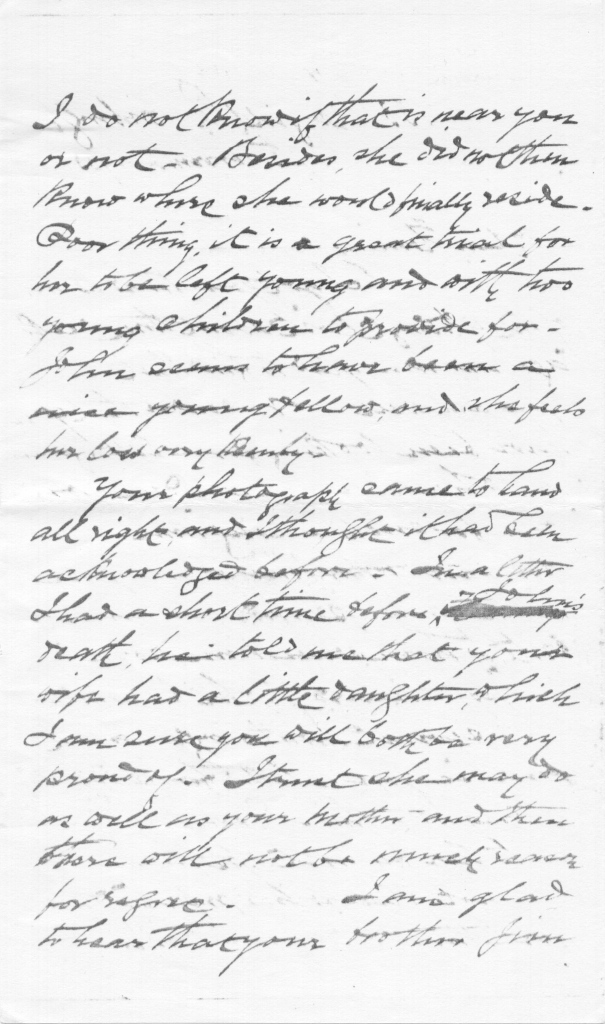 I do not know if that is near you
or not. Besides, she did not then
know where she would finally reside.
Poor thing, it is a great trial for
her to be left young and with two
young children to provide for.
John seems to have been a
nice young fellow, and she feels
her loss very keenly.
Your photograph came to hand
all right and I thought it had been
acknowledged before. In a letter
I had a short time before John's
death, he told me that your
wife had a little daughter, which
I am sure you will both be very
proud of. I trust she may do
as well as your mother and then
there will not be much reason
for regret. I am glad
to hear that your brother Jim